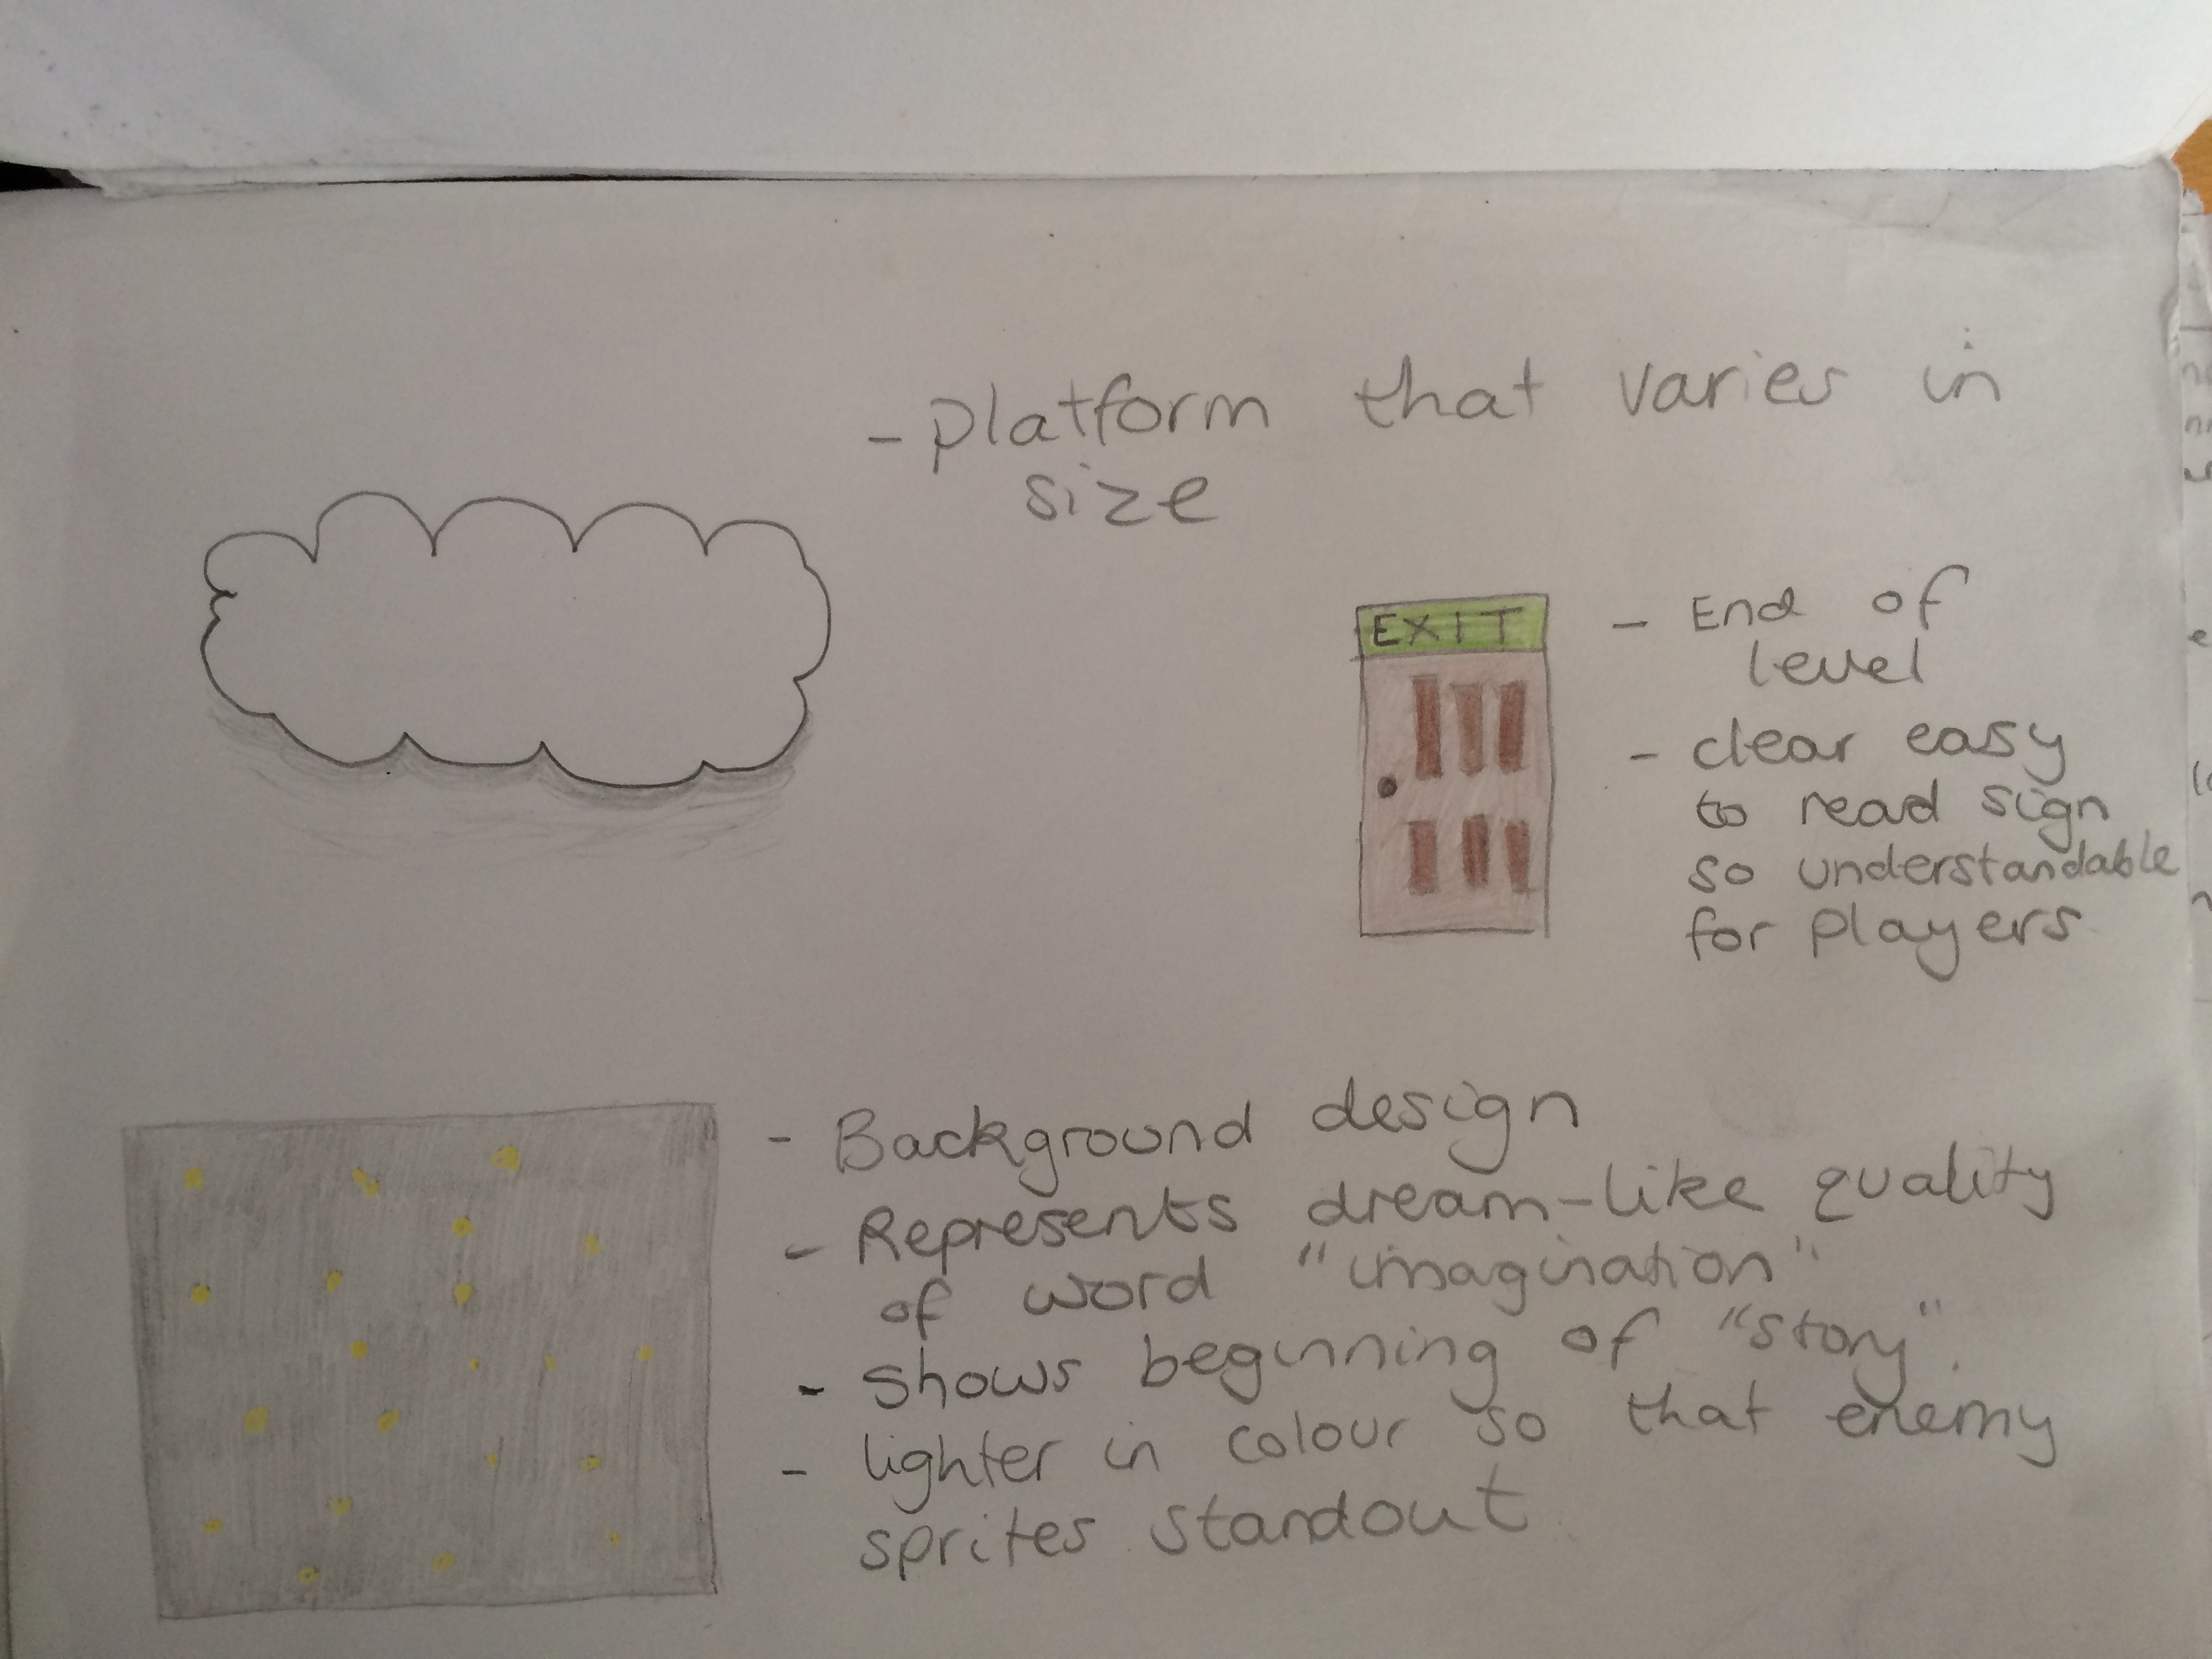 -platform that varies in
size
EXIT
- End of
level
- clear easy
to read sign
so understandable
for players
- Background design
- Represents dream-like quality
of word "imagination".
- shows beginning of "story"
- lighter in colour so that enemy
sprites standout